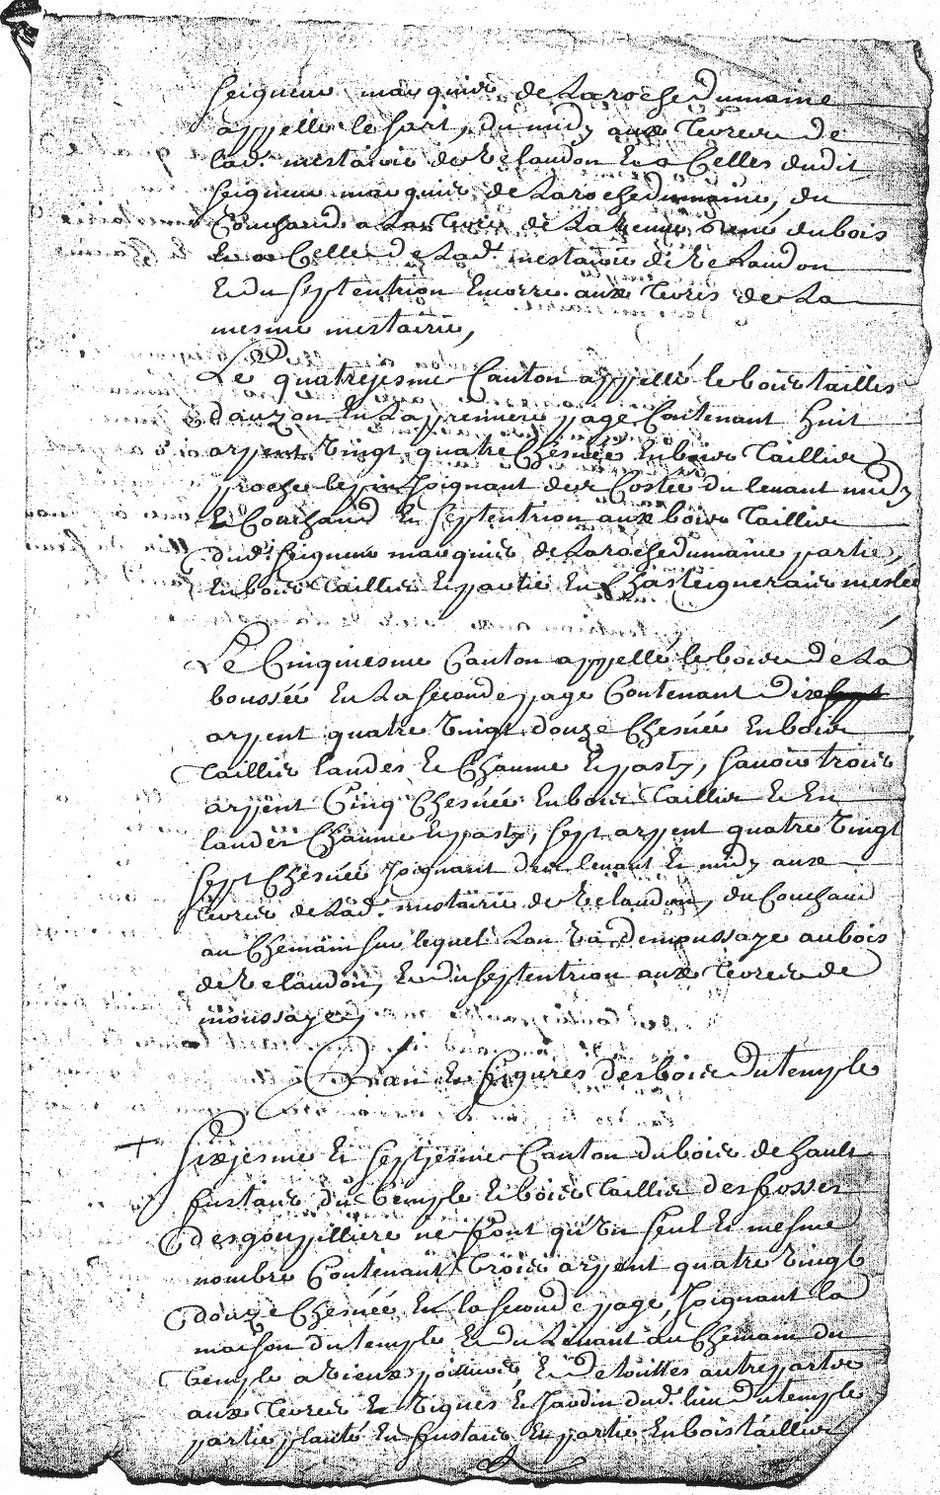 seigneur marquis de Laroche Dumaine
appellé le sart, du midy aux terres de
lad. mestairie de Relandon et a Celles dudit
seigneur marquis de Laroche Dumaine, du
Couchand a La terre de La René dubois
et a Celle de Lad. mestairie de Relandon
et du septentrion encorre aux terres de La
mesme mestairie,
Le quatriesme Canton appellé le bois tailles
dauzon en La premiere page Contenant huit
arpent vingt quatre Chesnée en bois Taillier
proche le pin Joignant des Costée du levant midy
et Couchand et septentrion aux bois Taillie
dud. seigneur marquis de Laroche Dumaine partie,
en bois Taillier et partie en Chasteigneraie meslée
Le Cinquiesme Canton appellé le bois de La
boussée en La seconde page Contenant dix
arpent quatre vingt douze Chesnée en bois
Taillie landes et Chaume et pasty, savoir trois
arpent Cinq Chesnée en bois Taillie et en
landes Chaume et pasty, sept arpent quatre vingt
sept Chesnée Joignant du levant et midy aux
terres de Lad. mestairie de Relandon, du Couchand
au Chemain sur lequel Lon va de moussaye au bois
de Relandon, et du septentrion aux terres de
moussaye,
Plan et figures des bois Du temple
+ Sixiesme et septiesme Canton du bois de haute
fustaie du temple et bois taillie des fosses
des goupilliere ne font qu'un seul et mesme
nombre Contenant trois arpent quatre vingt
douze Chesnée en la seconde page, Joignant la
maison du temple et du Levant au Chemain du
temple a vieux poitiers, et de touttes autre partie
aux terres et vignes et Jardin dud. lieu Du temple
partie planté en fustaie et partie en bois taillie